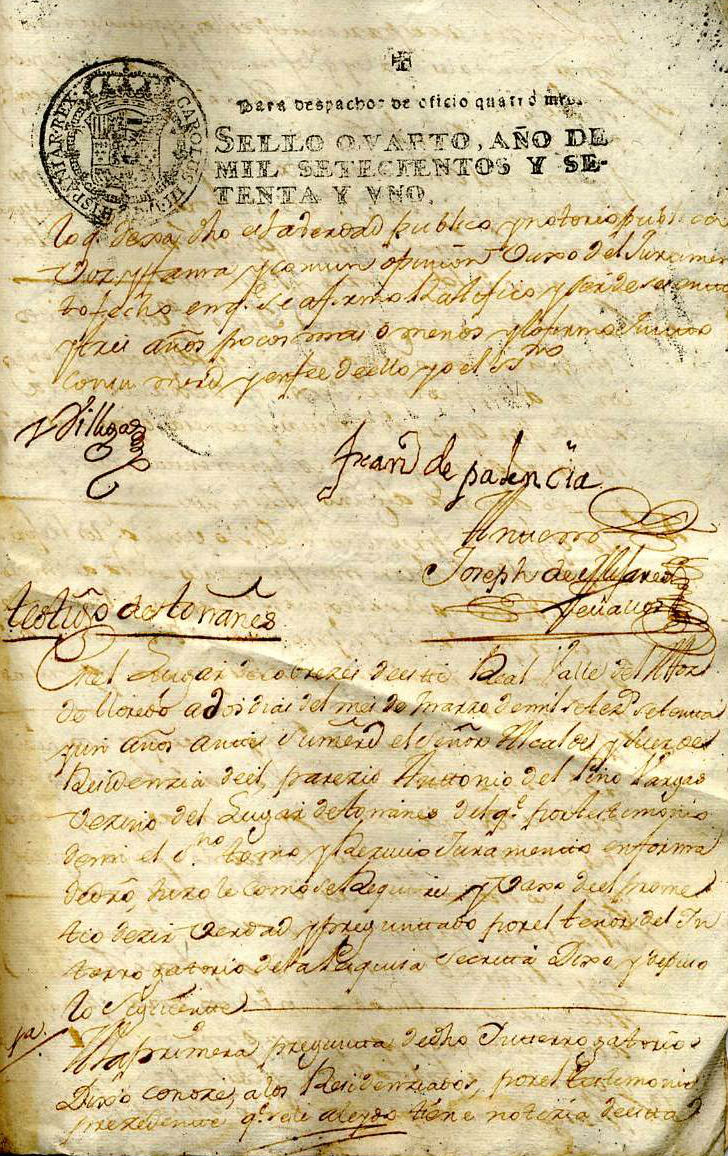 HISPANIAR.REX CAROLUS III
Para despachos de oficio quatro mrs.
SELLO QVARTO, AÑO DE
MIL SETECIENTOS Y SE-
TENTA Y VNO.
lo q. dho es la verdad publico y notorio publica
Voz y fama y comun opinion Vaxo del Juramen
to fecho en q.e se afirmo Ratifico y ser de
y tres años poco mas o menos y lo firmo Junto
con su merd y en fee de ello yo el Ss.no
Villegas
Fran.co de palencia
Antte mi
Joseph de
Zevallos
testigo de toñanes
En el Lugar de cobrezes de este Real Valle de Alfoz
de lloredo a dos dias del mes de Marzo de mil setez.s setenta
y un años antte Sumerd el Señor Alcalde y Juez de
Residenzia de el, parezio Anttonio del Pino Vargas
Vezino del Lugar de toñanes del q.e por testimonio
de mi el S.no tomo y Rezivio Juramento en forma
de dro, hizo le como se Requiere y Vaxo de el prome
tio dezir Verdad y preguntado por el tenor del In
terrogatorio de la Pesquisa Secretta Dixo y depuso
lo Siguiente
1a. A la primera pregunta de dho Interrogatorio
Dixo conoze, a los Residenziados, por el testimonio
prezedente q.e se le a leydo tiene noticia de esta